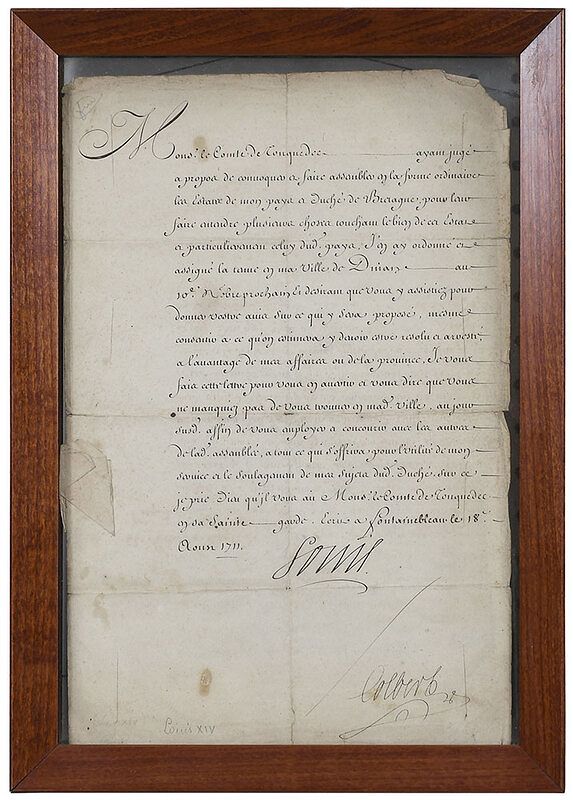 Mons.r le Comte de Tonquedec ayant jugé
a propos de convoquer et faire assembler en la forme ordinaire
les Estats de mon pays et Duché de Bretagne, pour leur
faire entendre plusieurs choses touchant le bien de cet Estat
et particulierement celuy dud. pays, J'en ay ordonné et
assigné la tenue en ma ville de Dinan au
10.e Nobre prochain Et desirant que vous y assistiez pour
donner vostre avis sur ce qui y sera proposé, mesme
consentir a ce qu'on estimera y devoir estre resolu et arresté,
a l'avantage de mes affaires ou de la province, Je vous
fais cette lettre pour vous en avertir et vous dire que vous
ne manquiez pas de vous trouver en mad. ville, au jour
susd. affin de vous employer a concourir avec les autres
de lad. assemblée, a tout ce qui s'offrira pour l'utilité de mon
service et le soulagement de mes sujets dud. Duché, sur ce
je prie Dieu qu'jl vous ait Mons.r le Comte de Tonquedec
en sa Sainte garde. Ecrit a Fontainebleau le 18.e
Aoust 1711.
Louis
Colbert
Louis XIV